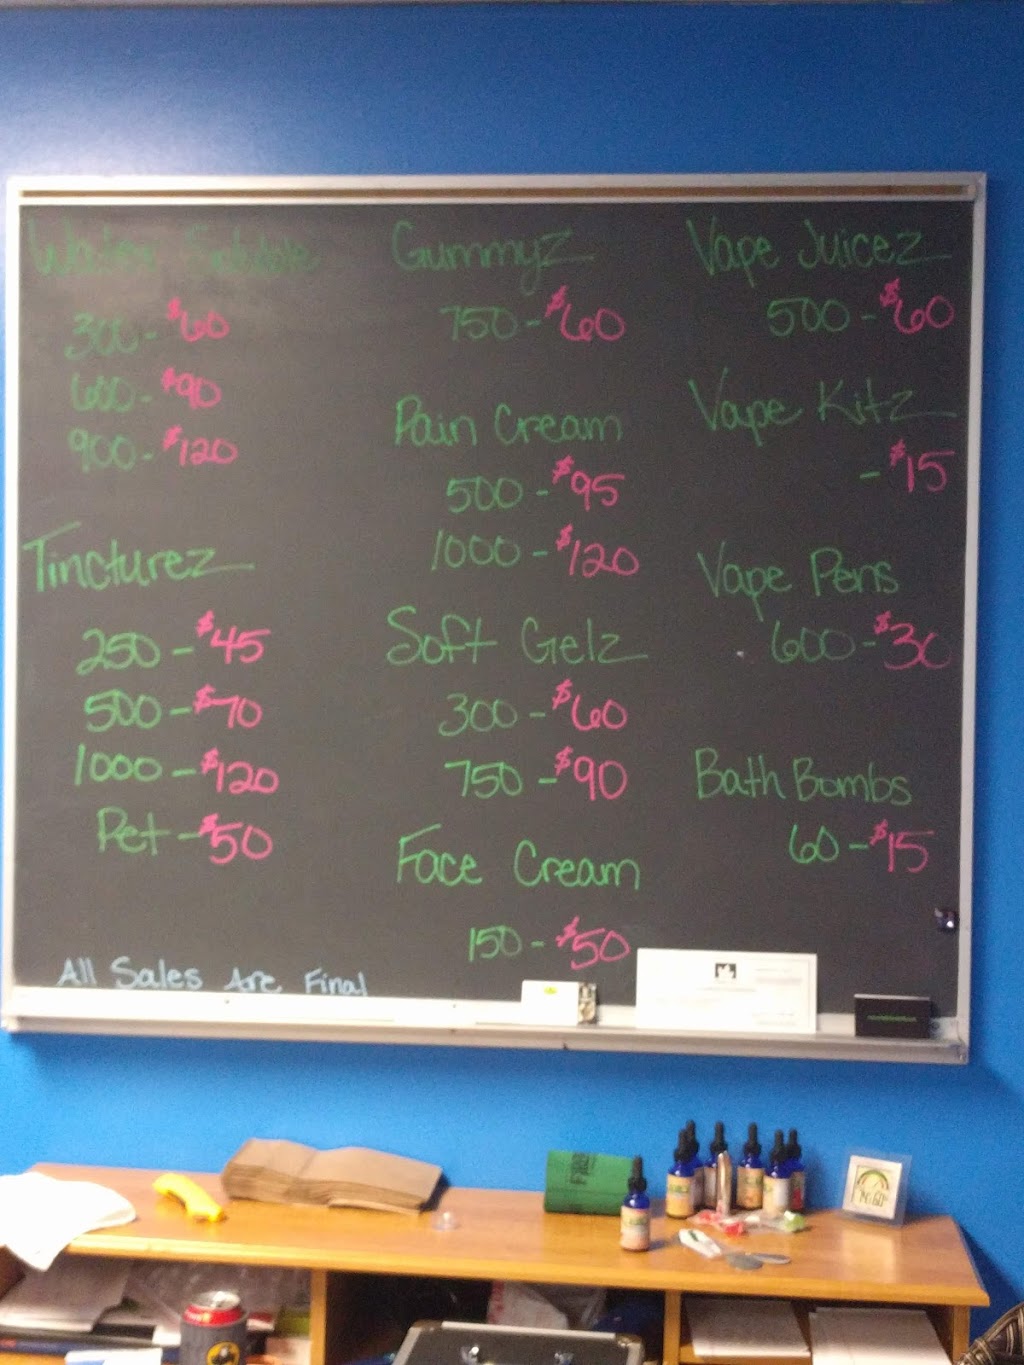 Water Soluble
300-$60
600-$90
900-$120
Tincturez
250-$45
500-$70
1000-$120
Pet-$50
All Sales Are Final
Gummyz
750-$60
Pain Cream
500-$95
1000-$120
Soft Gelz
300-$60
750-$90
Face Cream
150-$50
Vape Juicez
500-$60
Vape Kitz
-$15
Vape Pens
600-$30
Bath Bombs
60-$15